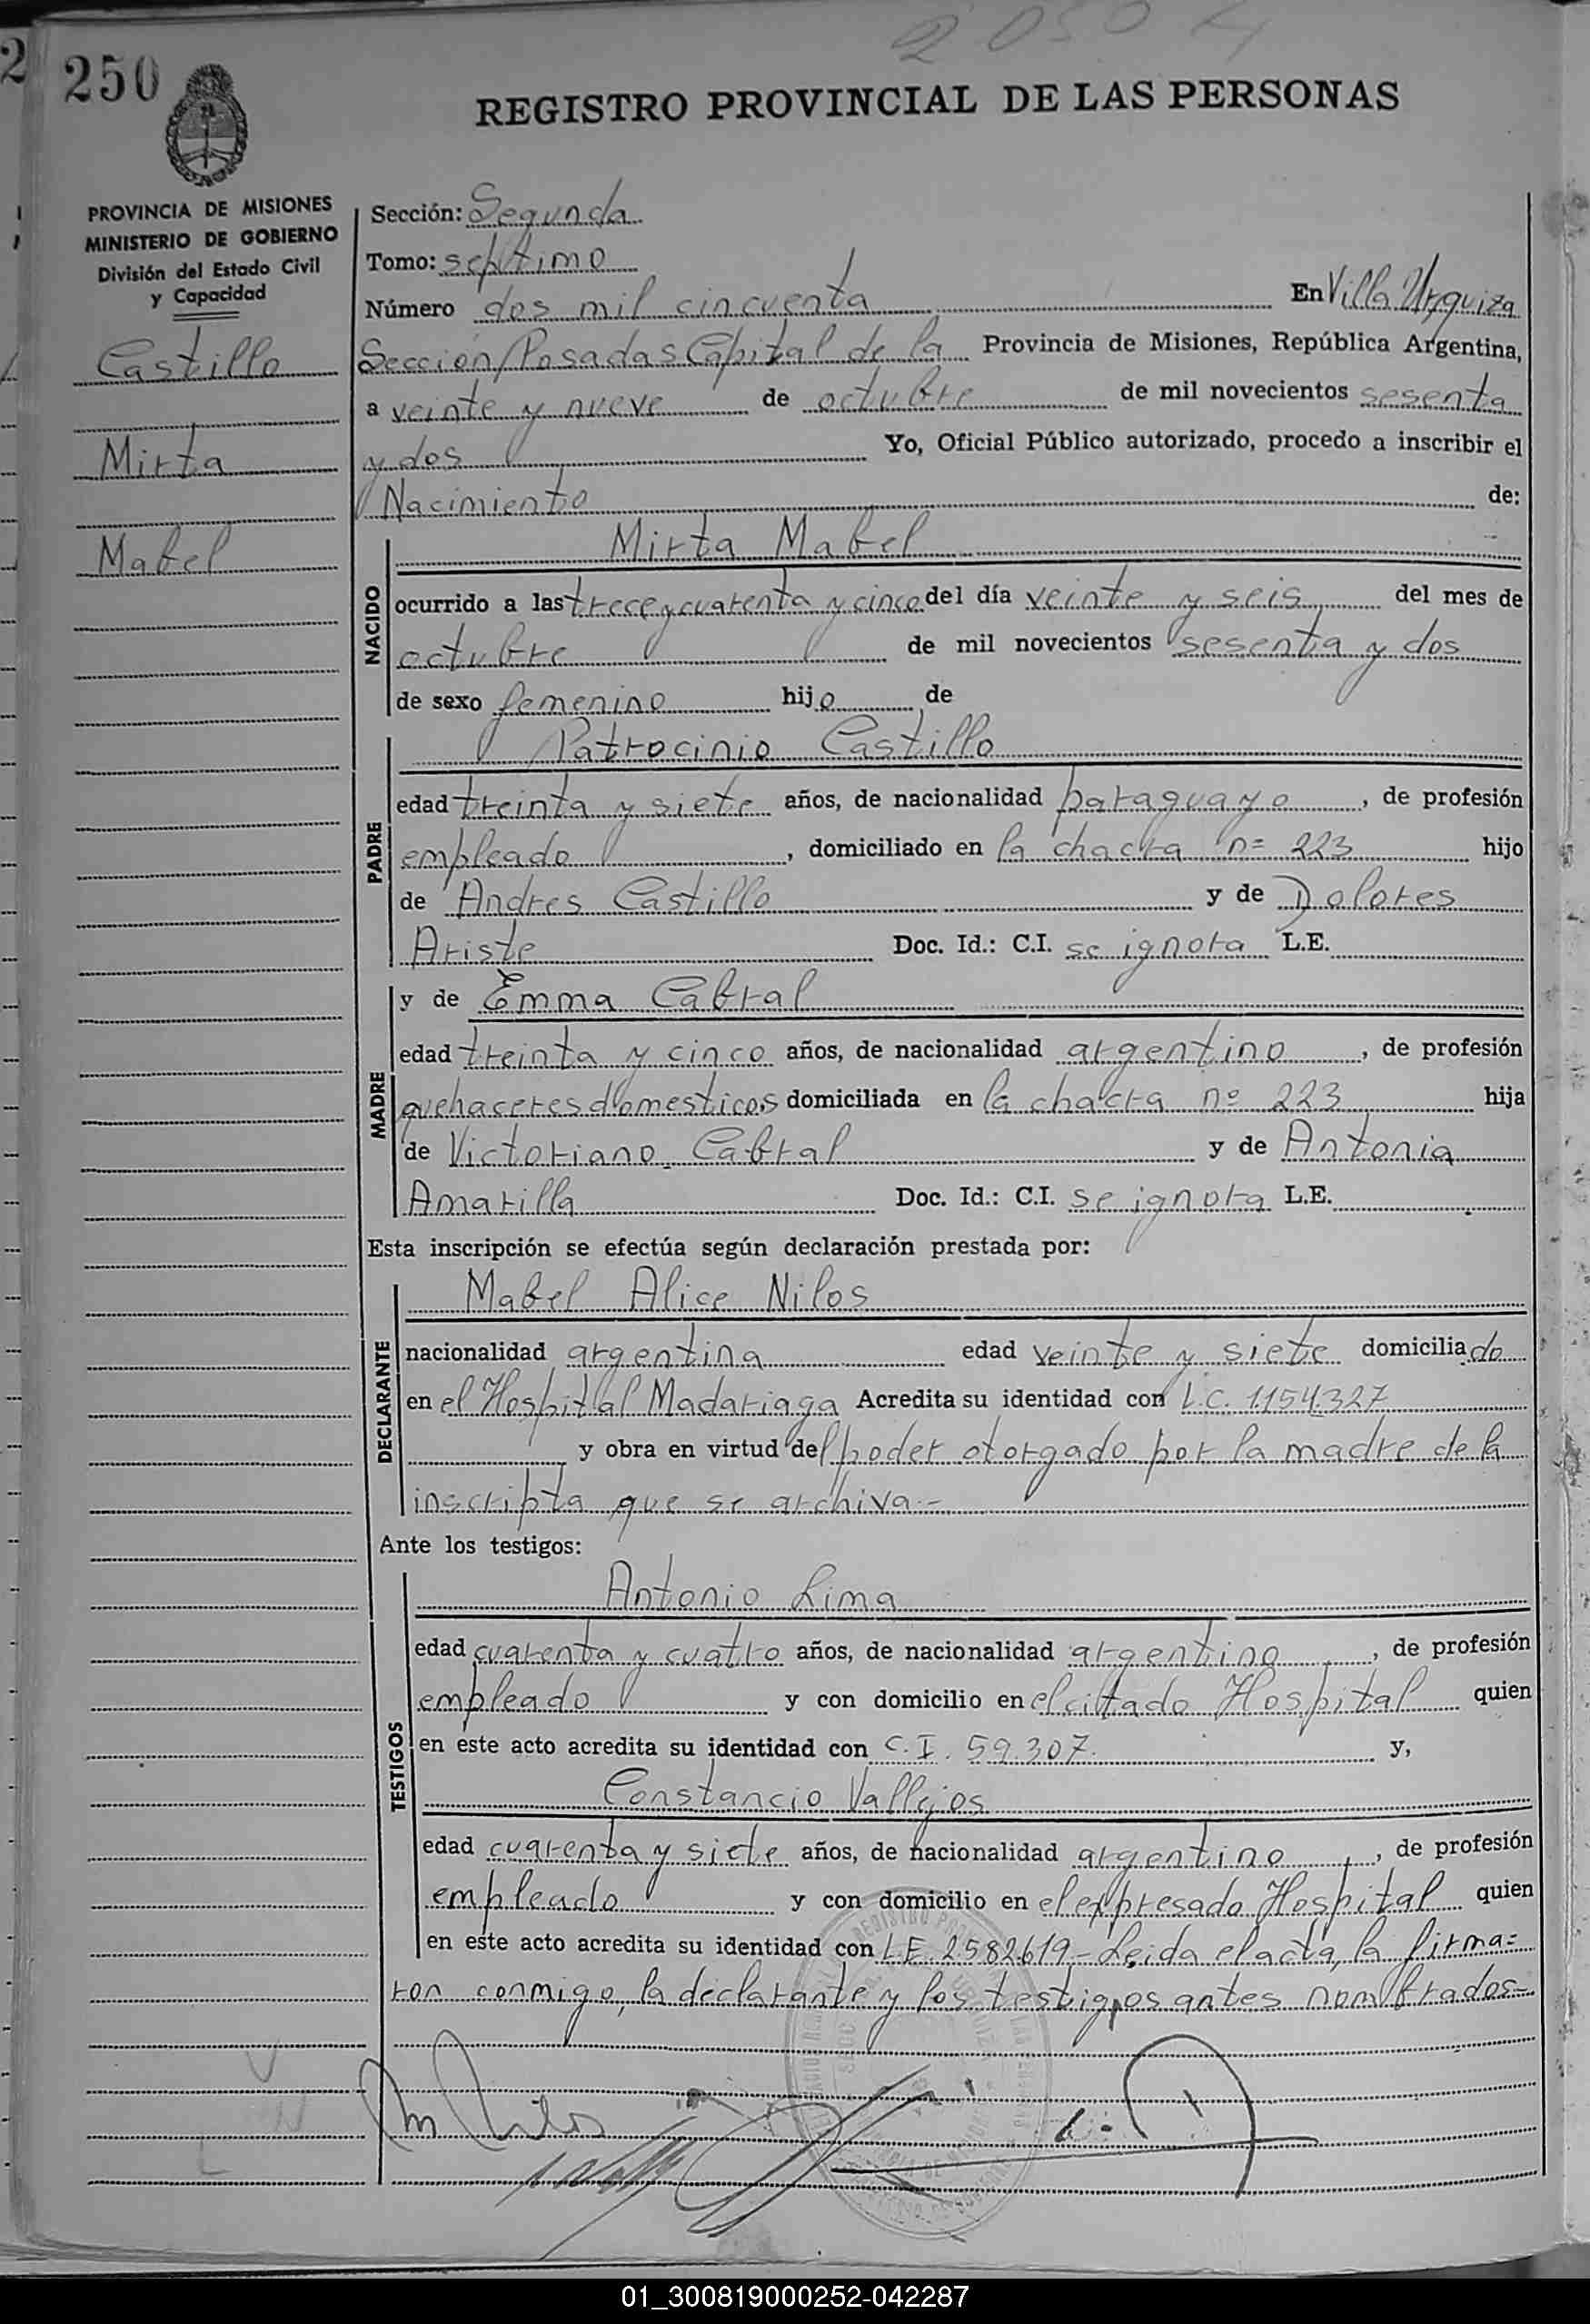 250
REGISTRO PROVINCIAL DE LAS PERSONAS
PROVINCIA DE MISIONES
MINISTERIO DE GOBIERNO
División del Estado Civil
y Capacidad
Castillo
Mirta
Mabel
Sección: Segunda
Tomo: septimo
Número dos mil cincuenta En Villa Urquiza
Sección/Posadas Capital de la Provincia de Misiones, República Argentina,
a veinte y nueve de octubre de mil novecientos sesenta
y dos Yo, Oficial Público autorizado, procedo a inscribir el
Nacimiento de:
NACIDO
Mirta Mabel
ocurrido a las trece y cuarenta y cinco del día veinte y seis del mes de
octubre de mil novecientos sesenta y dos
de sexo femenino hijo de
PADRE
Patrocinio Castillo
edad treinta y siete años, de nacionalidad paraguayo, de profesión
empleado, domiciliado en la chacra n= 223 hijo
de Andres Castillo y de Dolores
Ariste Doc. Id.: C.I. se ignora L.E.
MADRE
y de Emma Cabral
edad treinta y cinco años, de nacionalidad argentino, de profesión
quehaceres domesticos domiciliada en la chacra nº 223 hija
de Victoriano Cabral y de Antonia
Amarilla Doc. Id.: C.I. se ignora L.E.
Esta inscripción se efectúa según declaración prestada por:
DECLARANTE
Mabel Alice Nilos
nacionalidad argentina edad veinte y siete domiciliado
en el Hospital Madariaga Acredita su identidad con L.C. 1154.327
y obra en virtud del poder otorgado por la madre de la
inscripta que se archiva.-
Ante los testigos:
TESTIGOS
Antonio Lima
edad cuarenta y cuatro años, de nacionalidad argentino, de profesión
empleado y con domicilio en el citado Hospital quien
en este acto acredita su identidad con C.I. 59.307. y,
Constancio Vallejos
edad cuarenta y siete años, de nacionalidad argentino, de profesión
empleado y con domicilio en el expresado Hospital quien
en este acto acredita su identidad con L.E. 2582619.- Leida el acta, la firma=
ron conmigo, la declarante y los testigos antes nombrados-
01_300819000252-042287